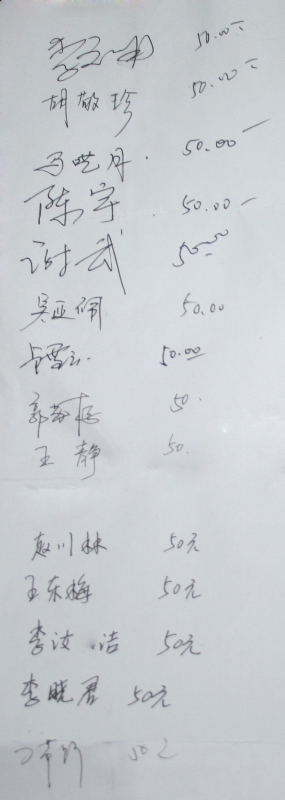 50.00元
胡敬珍 50.00元
马 月. 50.00
陈宇. 50.00
谢武 50.00
吴亚佩 50.00
50.00
郭 50.
王静 50.
赵川林 50元
王东梅 50元
李汝洁 50元
李晓君 50元
50元